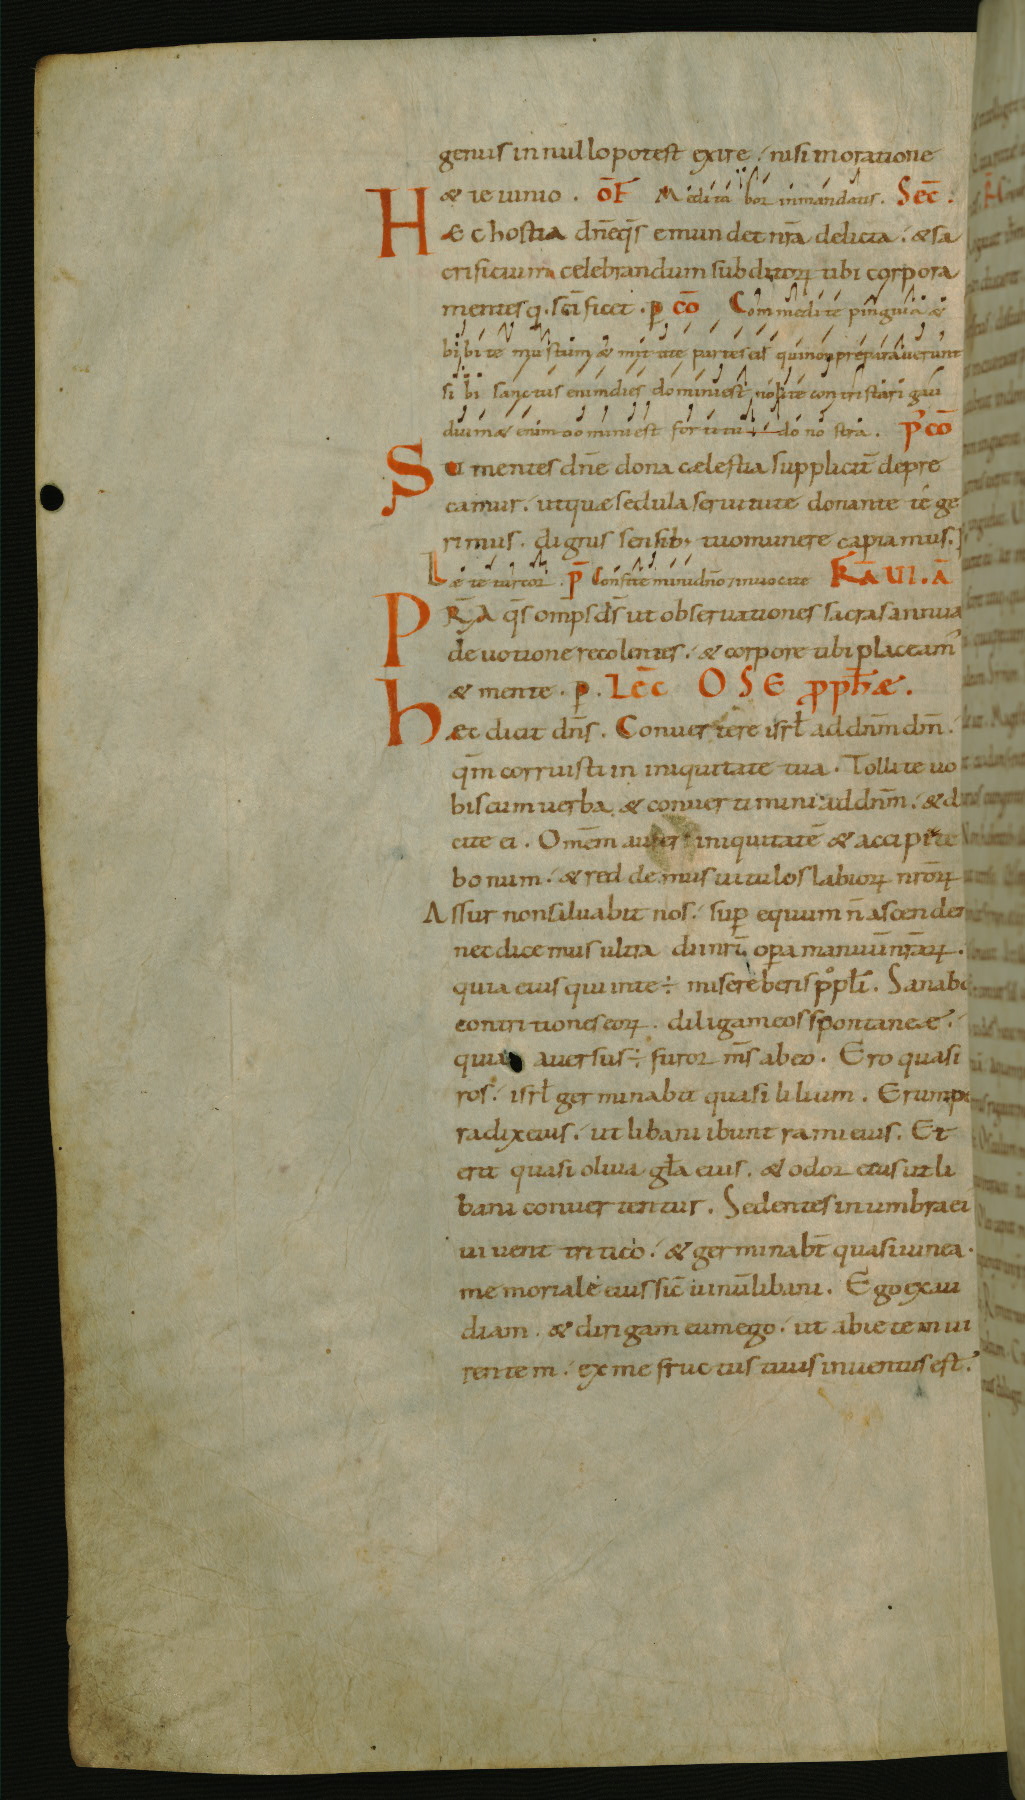 genus in nullo potest exire . nisi in oratione
& ieiunio . ōF Meditabor in mandatis . Sec̄ .
HÆc hostia dn̄e qs̄ emundet nr̄a delicta . & sa
crificium celebrandum subditoꝝ tibi corpora
mentesq . sc̄ificet . ꝑ cō Commedite pinguia &
bibite mustum & mittite partes eis qui non preparaverunt
sibi sanctus enim dies domini est nolite contristari gau
dium & enim domini est fortitudo nostra . p̄cō
Sumentes dn̄e dona cælestia suppliciter depre
camur . ut quæ sedula servitute donante te ge
rimus . dignis sensib; tuo munere capiamus .
Lætetur cor . p̄ Confitemini dn̄o & invocate
PRĀ qs̄ omp̄s ds̄ ut observationes sacras annua
devotione recolentes . & corpore tibi placeam̄
& mente . ꝑ . Lec̄ OSE ꝓph̄æ .
hæc dicit dn̄s . Convertere isrl̄ ad dn̄m dm̄ .
qm̄ corruisti in iniquitate tua . Tollite vo
biscum verba & convertimini ad dn̄m . & di
cite ei . Omēm aufer iniquitatē & accipite
bonum . & reddemus vitulos labioꝝ nr̄oꝝ
Assur non salvabit nos . suꝑ equum n̄ ascendem
nec dicemus ultra dii nr̄i oꝑa manuū nr̄aꝝ .
quia eius qui in te ÷ misereberis pꝉi . Sanabo
contritiones eoꝝ . diligam eos spontaneæ .
quia aversus ÷ furor m̄s ab eo . Ero quasi
ros . isrl̄ germinabit quasi lilium . Erumpe
radix eius . ut libani ibunt rami eius . Et
erit quasi oliva gl̄a eius . & odor eius ut li
bani convertentur . Sedentes in umbra ei
vivent tritico . & germinabt̄ quasi vinea .
memoriale eius sic̄ vinū libani . Ego exau
diam . & dirigam eum ego . ut abietem vi
rentem . ex me fructus tuus inventus est .